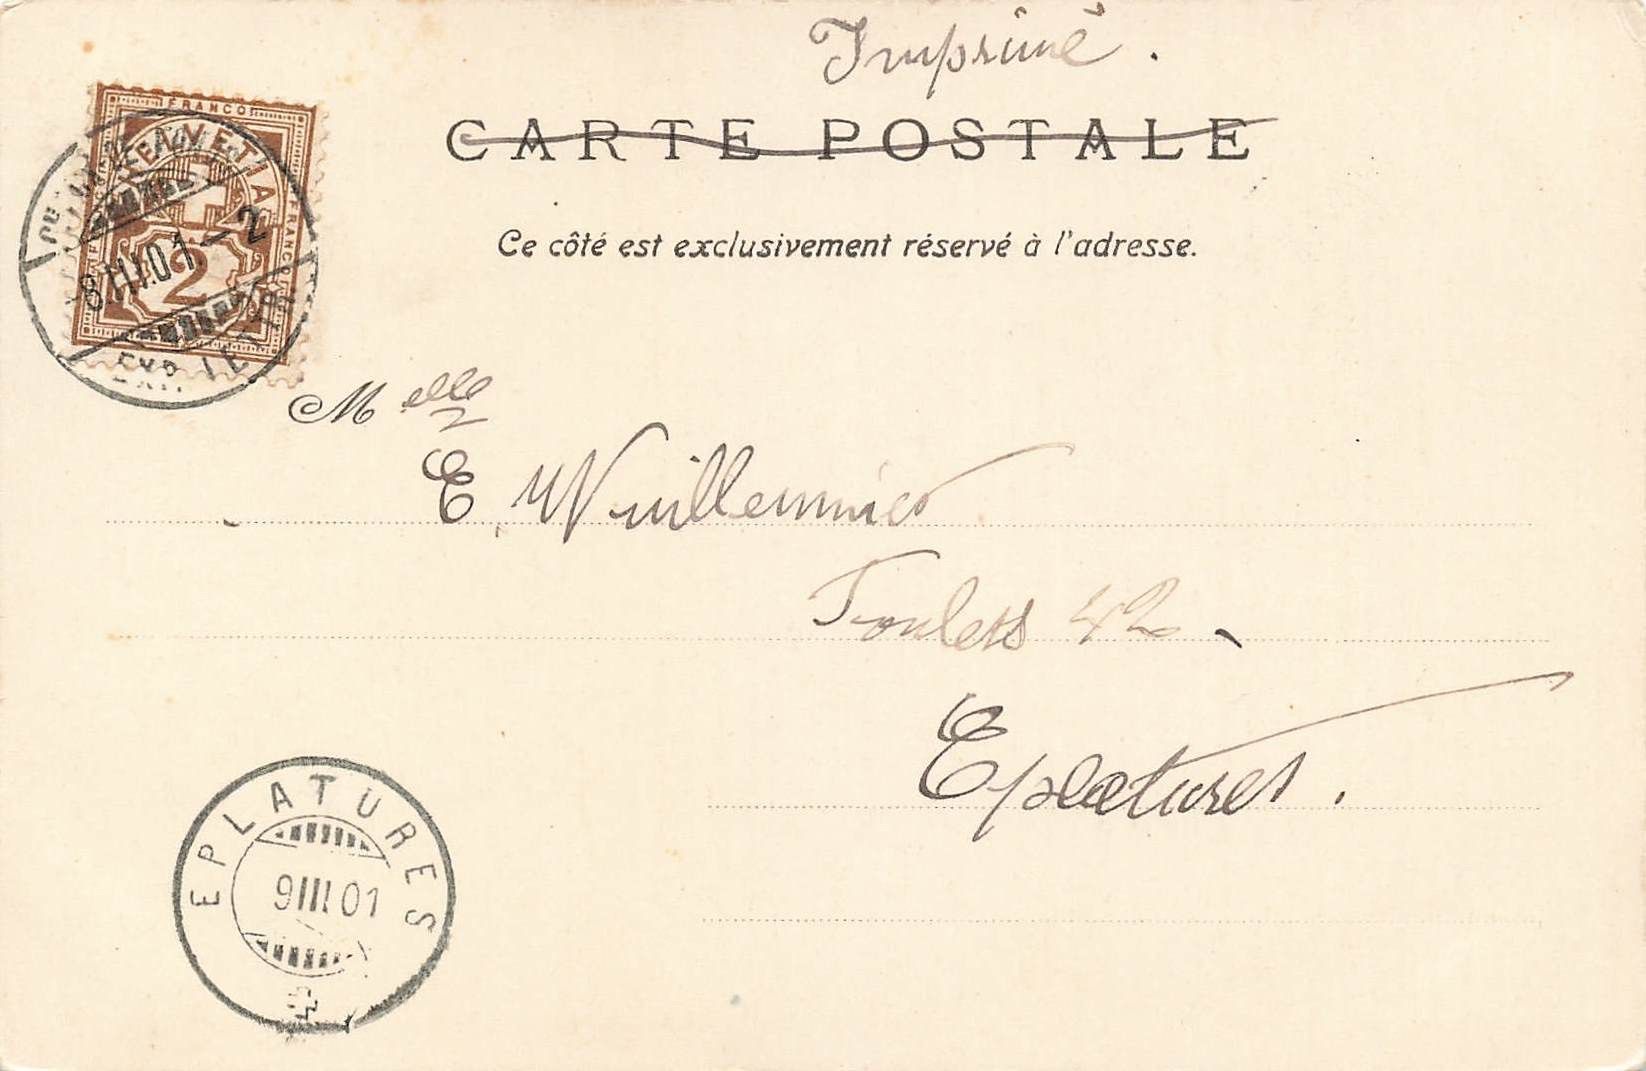 Imprimé.
CARTE POSTALE
Ce côté est exclusivement réservé à l'adresse.
FRANCO
HELVETIA
FRANCO
2
8.III.01.–2
EXP. LETTR.
Melle
E. Wuillemnier
42
Eplatures.
EPLATURES
9 III 01